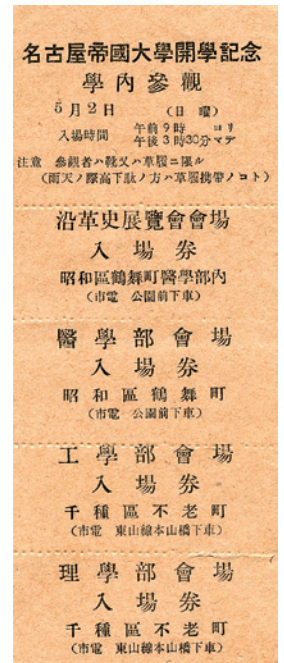 名古屋帝國大學開學記念
學內參觀
5月2日 （日曜）
入場時間 午前9時 ヨリ
午後3時30分マデ
注意 參觀者ハ靴又ハ草履ニ限ル
（雨天ノ際高下駄ノ方ハ草履携帶ノコト）
沿革史展覽會會場
入場券
昭和區鶴舞町醫學部內
（市電 公園前下車）
醫學部會場
入場券
昭和區鶴舞町
（市電 公園前下車）
工學部會場
入場券
千種區不老町
（市電 東山線本山橋下車）
理學部會場
入場券
千種區不老町
（市電 東山線本山橋下車）